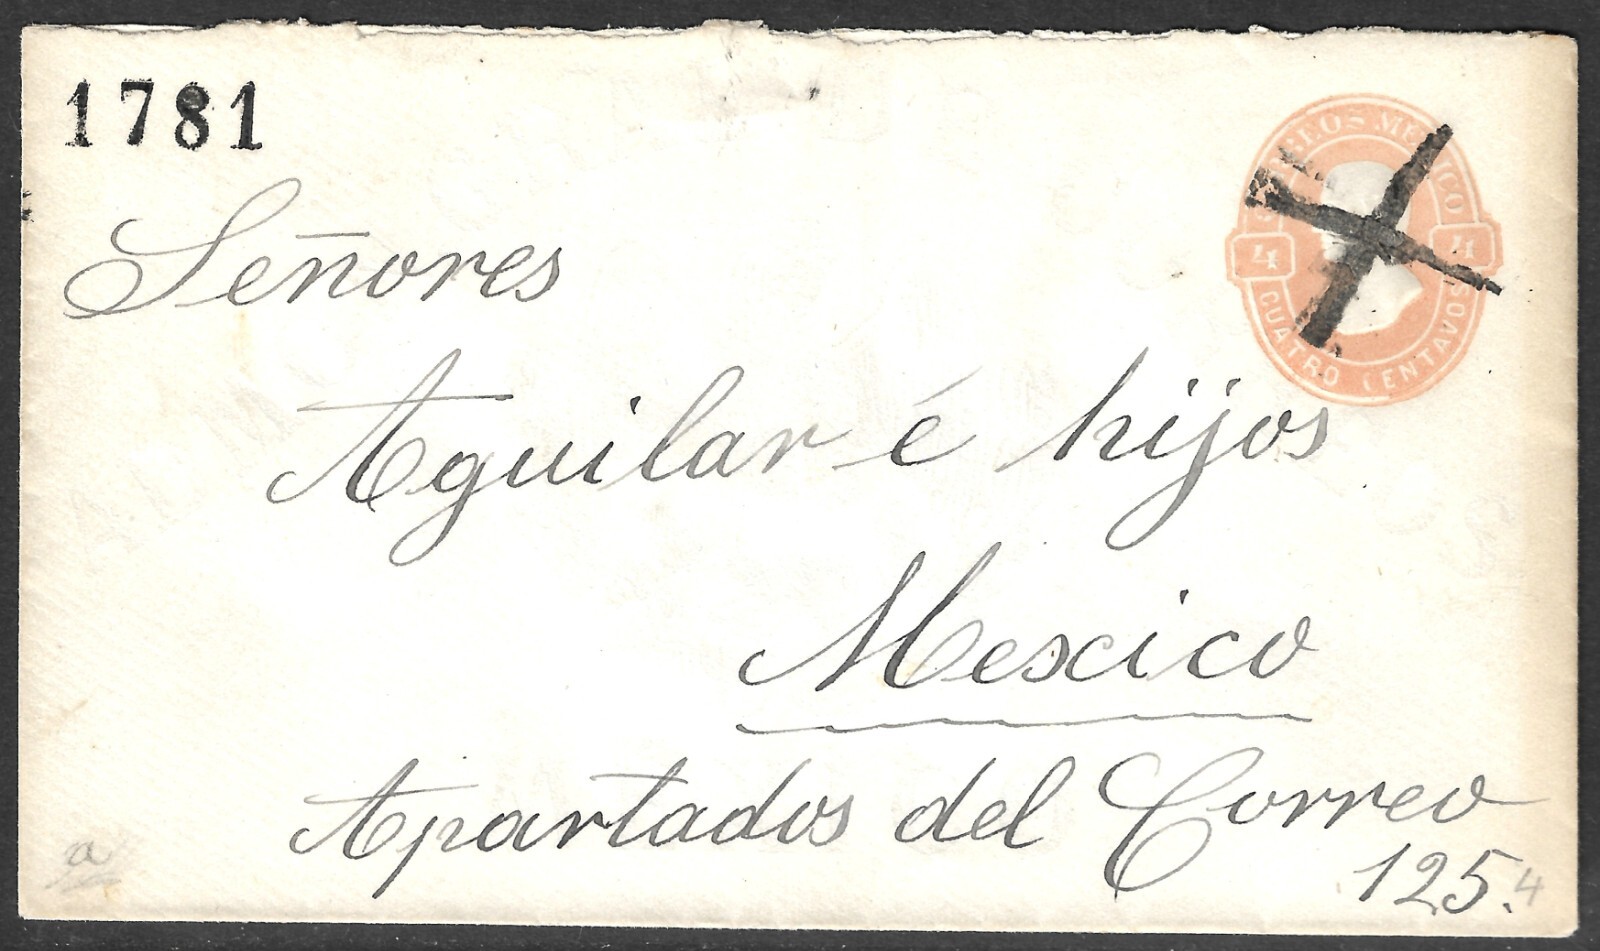 1781
CORREOS MEXICO
4 4
CUATRO CENTAVOS
Señores
Aguilar é hijos
Mexico
Apartados del Correo
125.
4
a